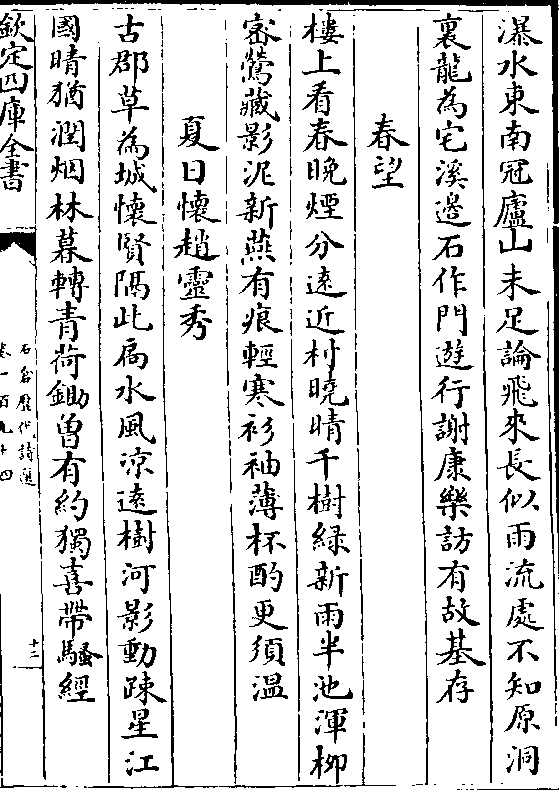 瀑水東南冠廬山未足論飛來長似雨流處不知原洞
裏龍為宅溪邊石作門遊行謝康樂訪有故基存
春望
樓上看春晚煙分遠近村曉晴千樹綠新雨半池渾柳
宻鶯藏影泥新燕有痕輕寒衫袖薄杯酌更須溫
夏日懷趙靈秀
古郡草為城懷賢隔此扄水風涼遠樹河影動踈星江
國晴猶潤烟林暮轉青荷鋤曽有約獨喜帶騷經
欽定四庫全書
石倉歷代詩選
卷一百九十四
十三